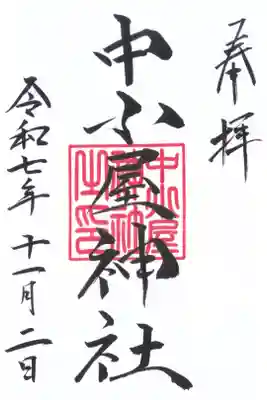 奉拝
中小屋神社
中小屋神社之印
令和七年 十一月二日